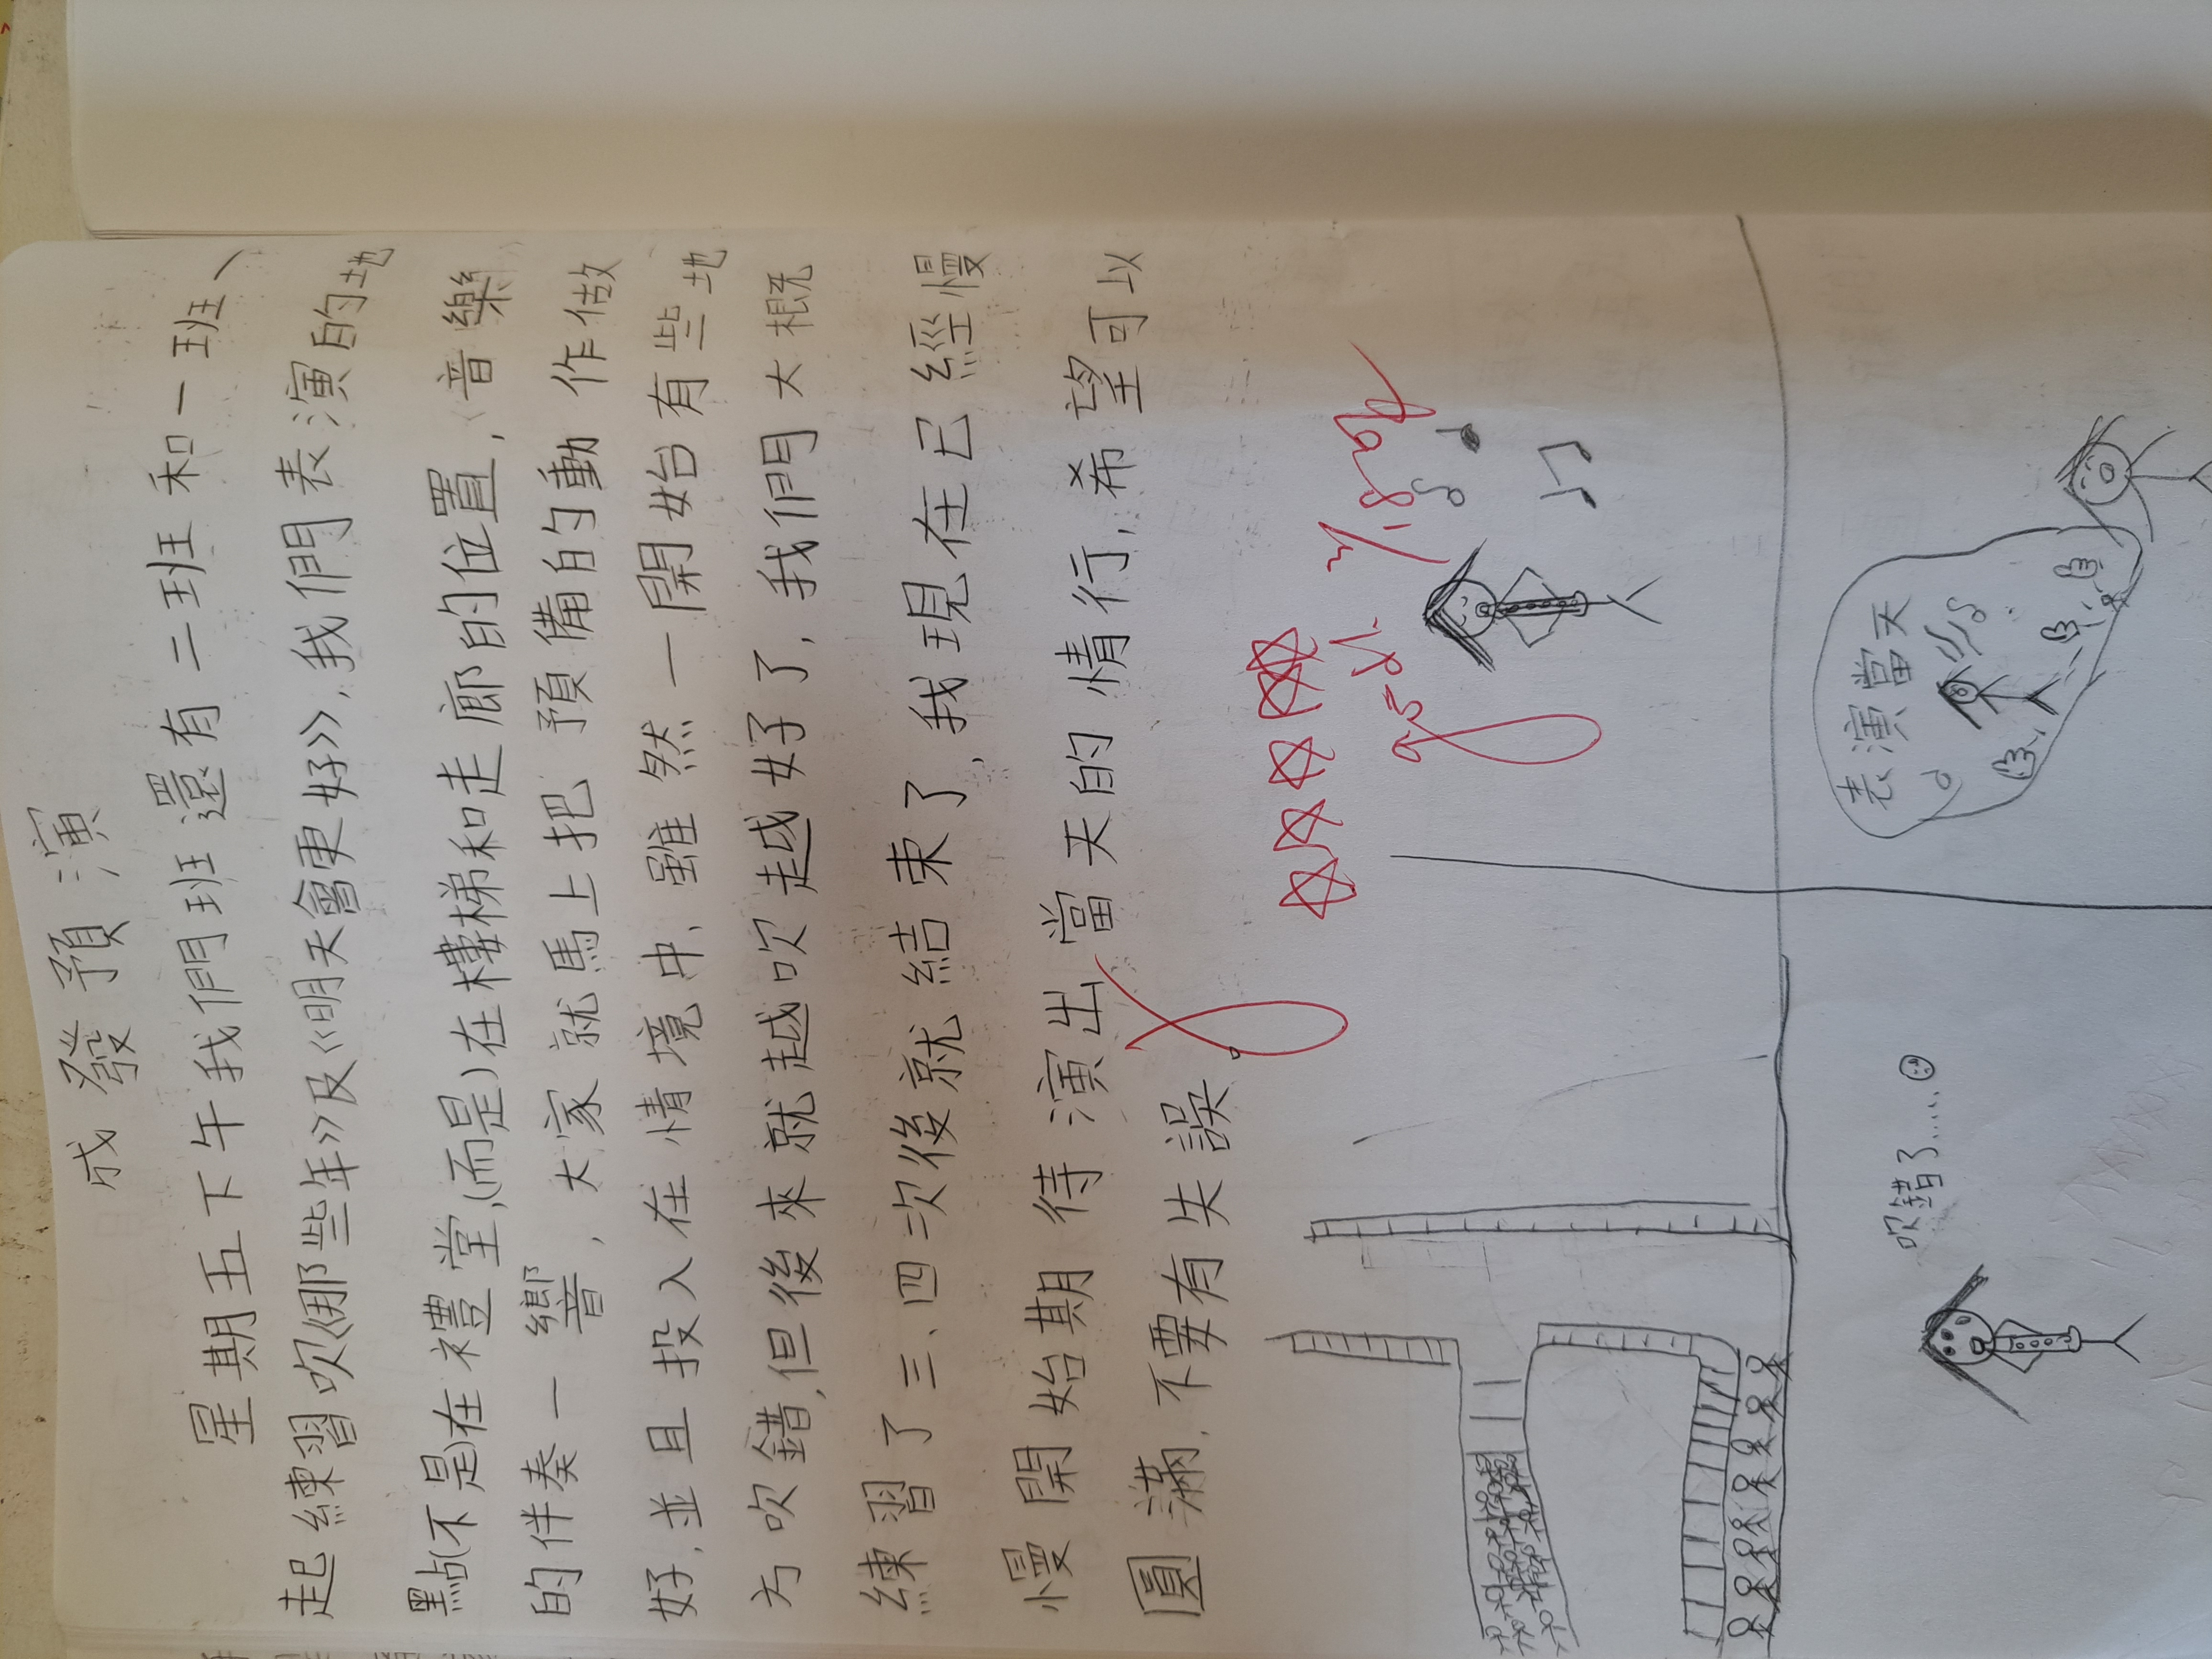 成發預演
星期五下午我們班還有二班和一班、一
起練習吹《那些年》及《明天會更好》,我們表演的地
點(不是)在禮堂,(而是)在樓梯和走廊的位置,音樂
的伴奏一響,大家就馬上把預備的動作做
好,並且投入在情境中、雖然一開始有些地
方吹錯,但後來就越吹越好了,我們大概
練習了三、四次後就結束了,我現在已經慢
慢開始期待演出當天的情行,希望可以
圓滿,不要有失誤。
表演當天
吹錯了......